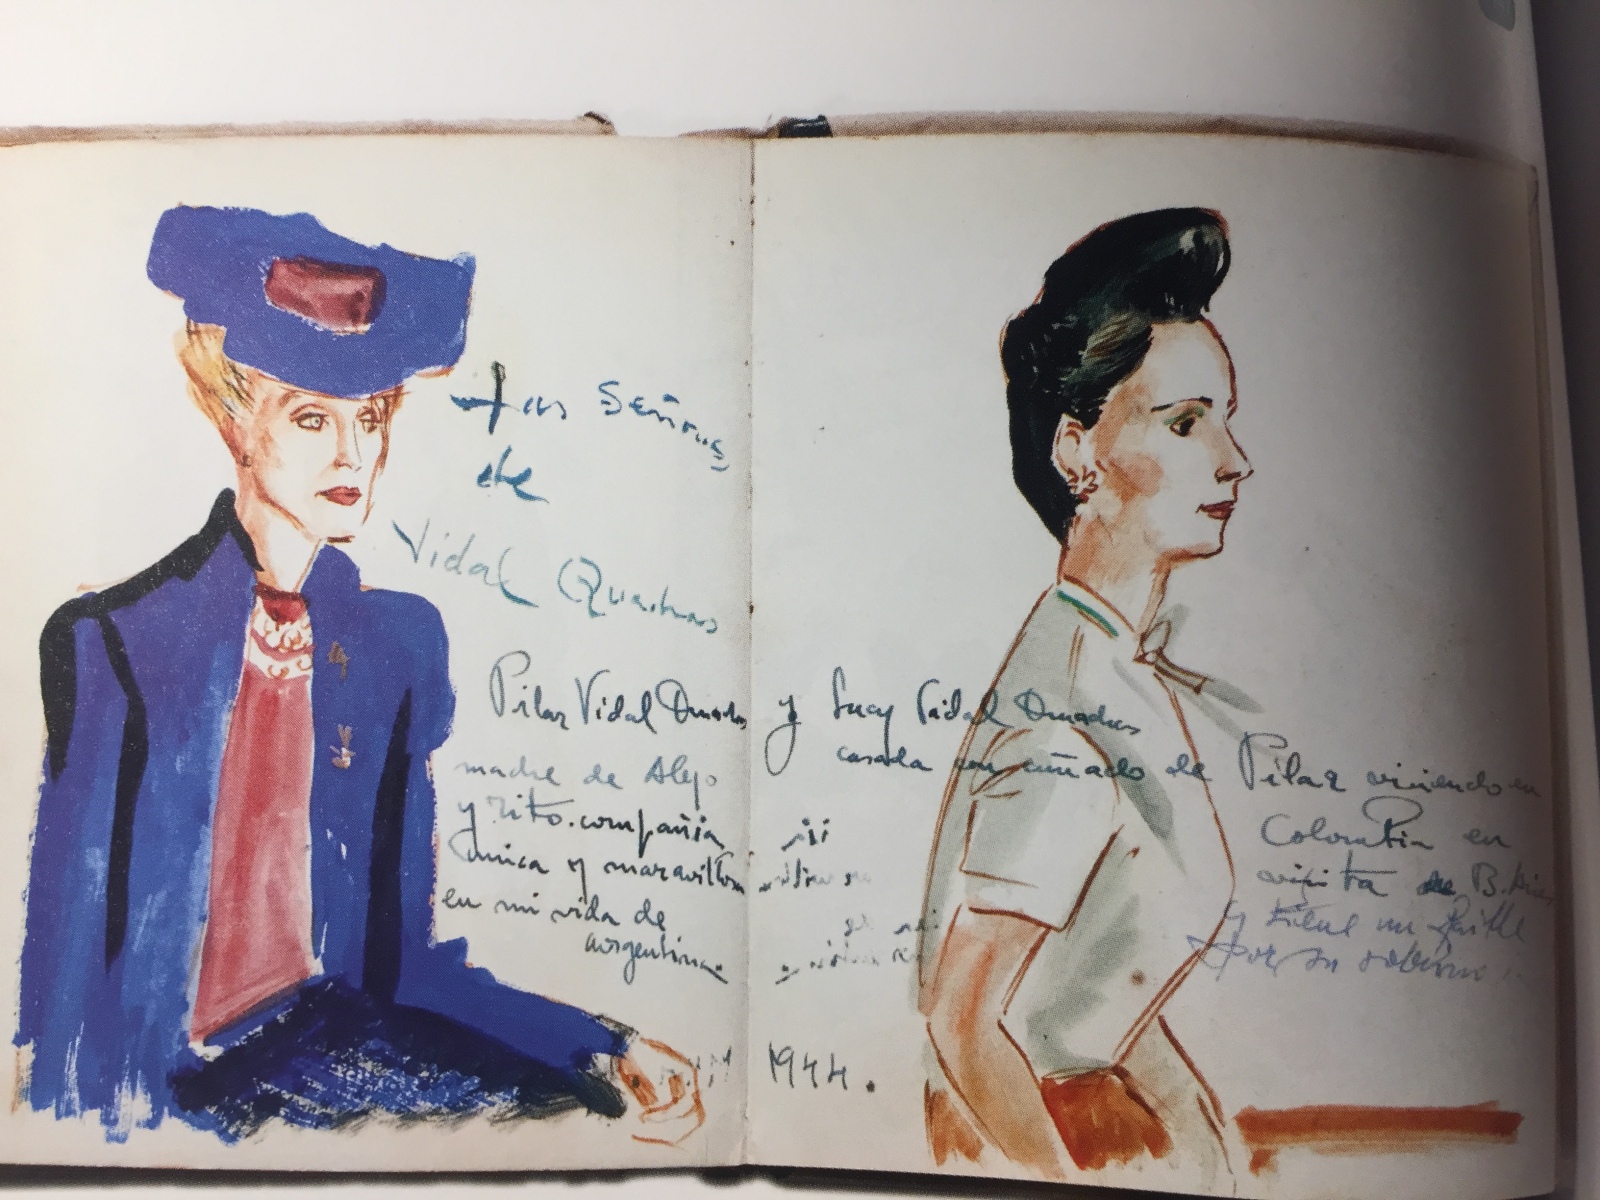 Las Señoras
de
Vidal Quadras
Pilar Vidal Quadras y Lucy Vidal Quadras
madre de Alejo
y Tito. compañia
unica y maravillosa
en mi vida de
argentina.
casada con cuñado de Pilar viviendo en
Colombia en
visita de B.
y tiene un
por su
1944.